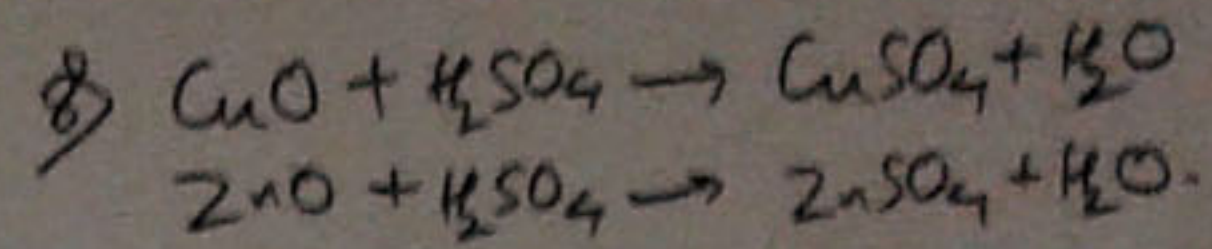 8) CuO + H₂SO₄ → CuSO₄ + H₂O
ZnO + H₂SO₄ → ZnSO₄ + H₂O.